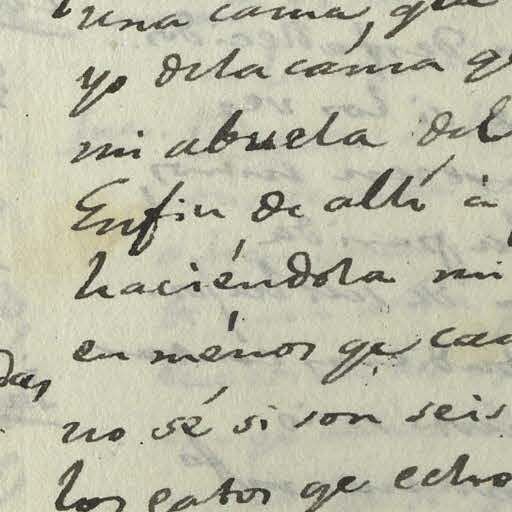 una cama, que
yo de la cama q
mi abuela del
Enfin de allí à
haciéndola mi
en ménos qe
das,
no sé si son seis
los gatos qe echo